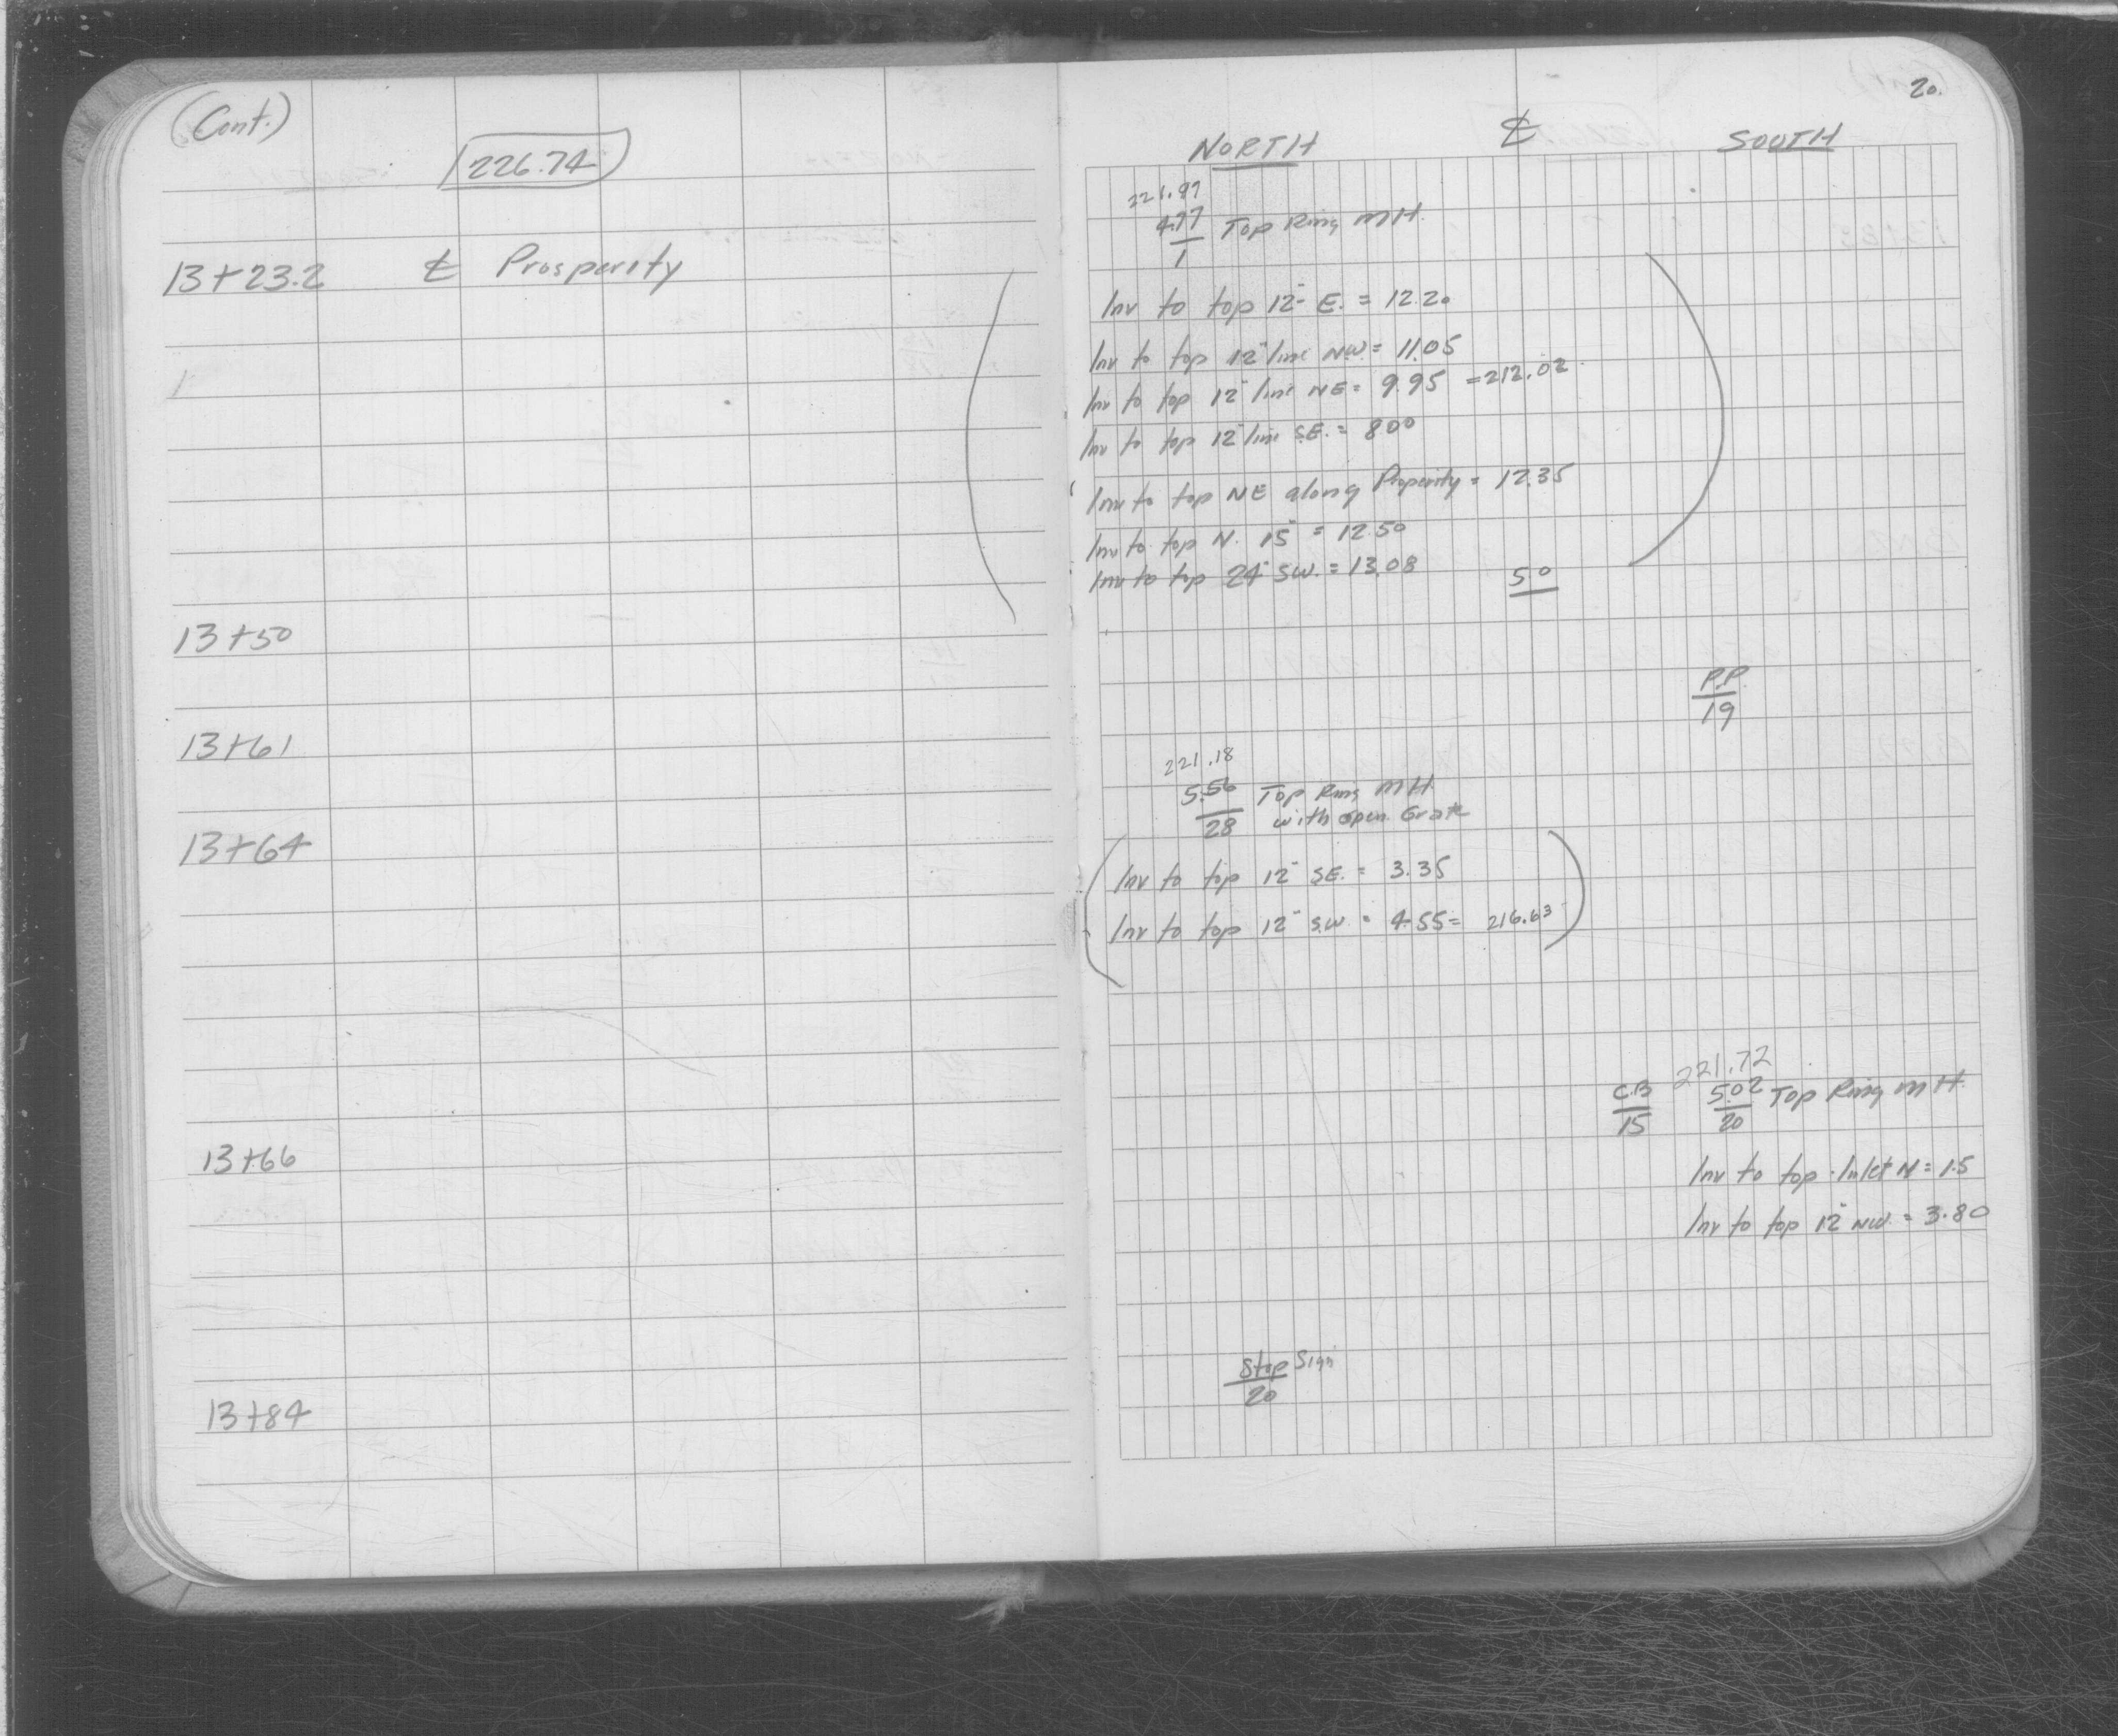 (Cont.)
226.74
13+23.2 ℄ Prosperity
13+50
13+61
13+64
13+66
13+84
20.
NORTH ℄ SOUTH
221.97
4.77 Top Ring MH.
1
Inv to top 12" E. = 12.20
Inv to top 12" line NW = 11.05
Inv to top 12" line NE = 9.95 = 212.02
Inv to top 12" line SE. = 8.00
Inv to top NE along Properity = 12.35
Inv to top N. 15" = 12.50
Inv to top 24" SW. = 13.08
5.0
P.P.
19
221.18
5.56 Top Ring MH.
28 with open Grate
Inv to top 12" SE. = 3.35
Inv to top 12" SW. = 4.55 = 216.63
221.72
C.B 5.02 Top Ring MH.
15 20
Inv to top Inlet N = 1.5
Inv to top 12" NW. = 3.80
Stop Sign
20